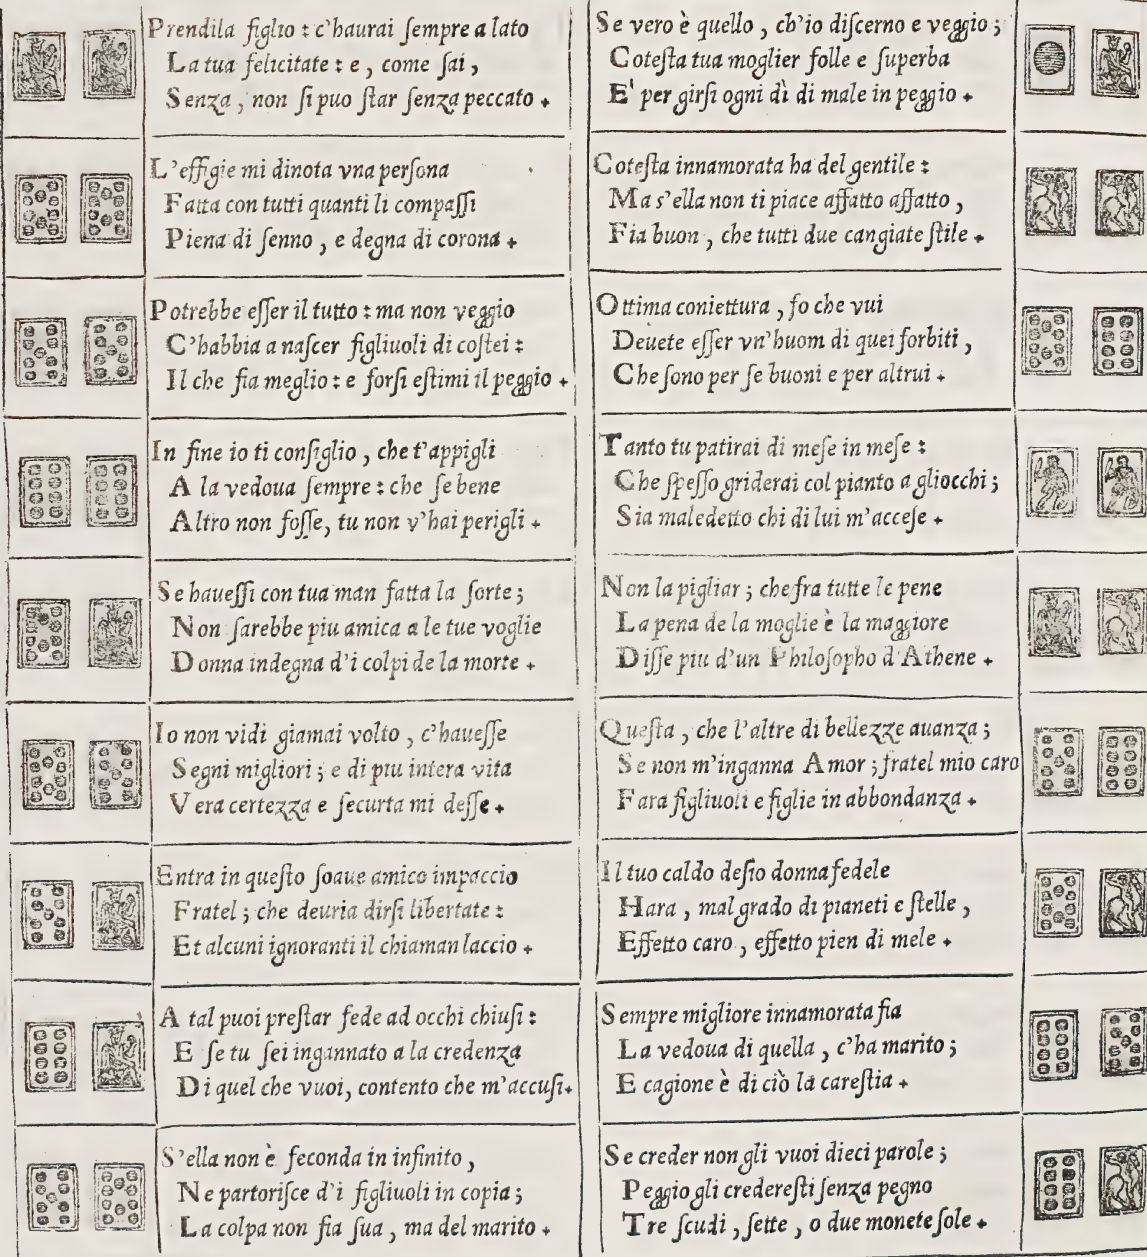 Prendila figlio : c'haurai ſempre a lato
La tua felicitate : e, come ſai,
Senza, non ſi puo ſtar ſenza peccato.
L'effigie mi dinota vna perſona
Fatta con tutti quanti li compaſſi
Piena di ſenno, e degna di corona.
Potrebbe eſſer il tutto : ma non veggio
C'habbia a naſcer figliuoli di coſtei :
Il che fia meglio : e forſi eſtimi il peggio.
In fine io ti conſiglio, che t'appigli
A la vedoua ſempre : che ſe bene
Altro non foſſe, tu non v'hai perigli.
Se haueſſi con tua man fatta la ſorte;
Non ſarebbe piu amica a le tue voglie
Donna indegna d'i colpi de la morte.
Io non vidi giamai volto, c'haueſſe
Segni migliori; e di piu intera vita
Vera certezza e ſecurta mi deſſe.
Entra in queſto ſoaue amico impaccio
Fratel; che deuria dirſi libertate :
Et alcuni ignoranti il chiaman laccio.
A tal puoi preſtar fede ad occhi chiuſi :
E ſe tu ſei ingannato a la credenza
Di quel che vuoi, contento che m'accuſi.
S'ella non è feconda in infinito,
Ne partoriſce d'i figliuoli in copia;
La colpa non fia ſua, ma del marito.
Se vero è quello, ch'io diſcerno e veggio;
Coteſta tua moglier folle e ſuperba
E' per girſi ogni dì di male in peggio.
Coteſta innamorata ha del gentile :
Ma s'ella non ti piace affatto affatto,
Fia buon, che tutti due cangiate ſtile.
Ottima coniettura, fo che vui
Deuete eſſer vn'huom di quei forbiti,
Che ſono per ſe buoni e per altrui.
Tanto tu patirai di meſe in meſe :
Che ſpeſſo griderai col pianto a gliocchi;
Sia maledetto chi di lui m'acceſe.
Non la pigliar; che fra tutte le pene
La pena de la moglie è la maggiore
Diſſe piu d'un Philoſopho d'Athene.
Queſta, che l'altre di bellezze auanza;
Se non m'inganna Amor; fratel mio caro
Fara figliuoli e figlie in abbondanza.
Il tuo caldo deſio donna fedele
Hara, mal grado di pianeti e ſtelle,
Effetto caro, effetto pien di mele.
Sempre migliore innamorata fia
La vedoua di quella, c'ha marito;
E cagione è di ciò la careſtia.
Se creder non gli vuoi dieci parole;
Peggio gli credereſti ſenza pegno
Tre ſcudi, ſette, o due monete ſole.